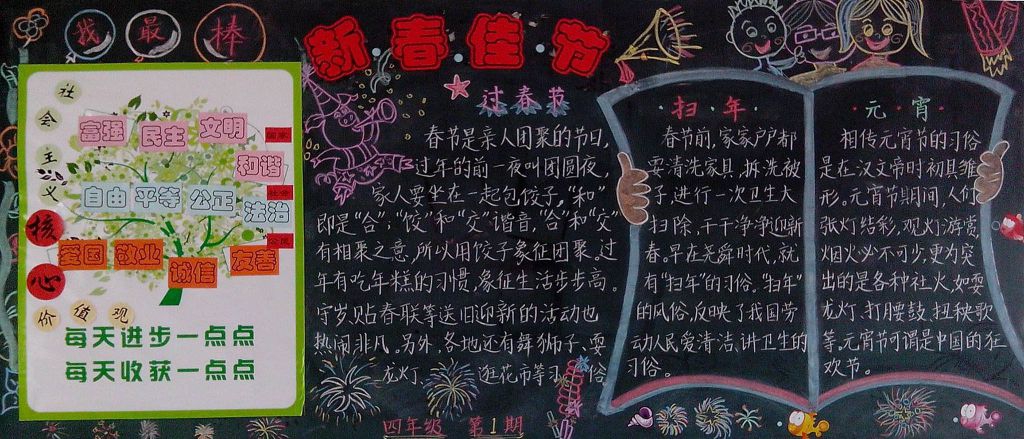 我最棒
社会主义核心价值观
富强 民主 文明
和谐
自由 平等 公正
法治
爱国 敬业
诚信 友善
每天进步一点点
每天收获一点点
新·春·佳·节
过春节
春节是亲人团聚的节日,
过年的前一夜叫团圆夜,
家人要坐在一起包饺子,“和”
即是“合”;“饺”和“交”谐音,“合”和“交”
有相聚之意,所以用饺子象征团聚。过
年有吃年糕的习惯,象征生活步步高。
守岁贴春联等送旧迎新的活动也
热闹非凡。另外,各地还有舞狮子、耍
龙灯、逛花市等习俗
四年级 第1期
扫·年·
春节前,家家户户都
要清洗家具,拆洗被
子,进行一次卫生大
扫除,干干净净迎新
春。早在尧舜时代,就
有“扫年”的习俗。“扫年”
的风俗,反映了我国劳
动人民爱清洁、讲卫生的
习俗。
·元·宵·
相传元宵节的习俗
是在汉文帝时初具雏
形。元宵节期间,人们
张灯结彩,观灯游赏,
烟火必不可少,更为突
出的是各种社火,如耍
龙灯、打腰鼓、扭秧歌
等。元宵节可谓是中国的狂
欢节。